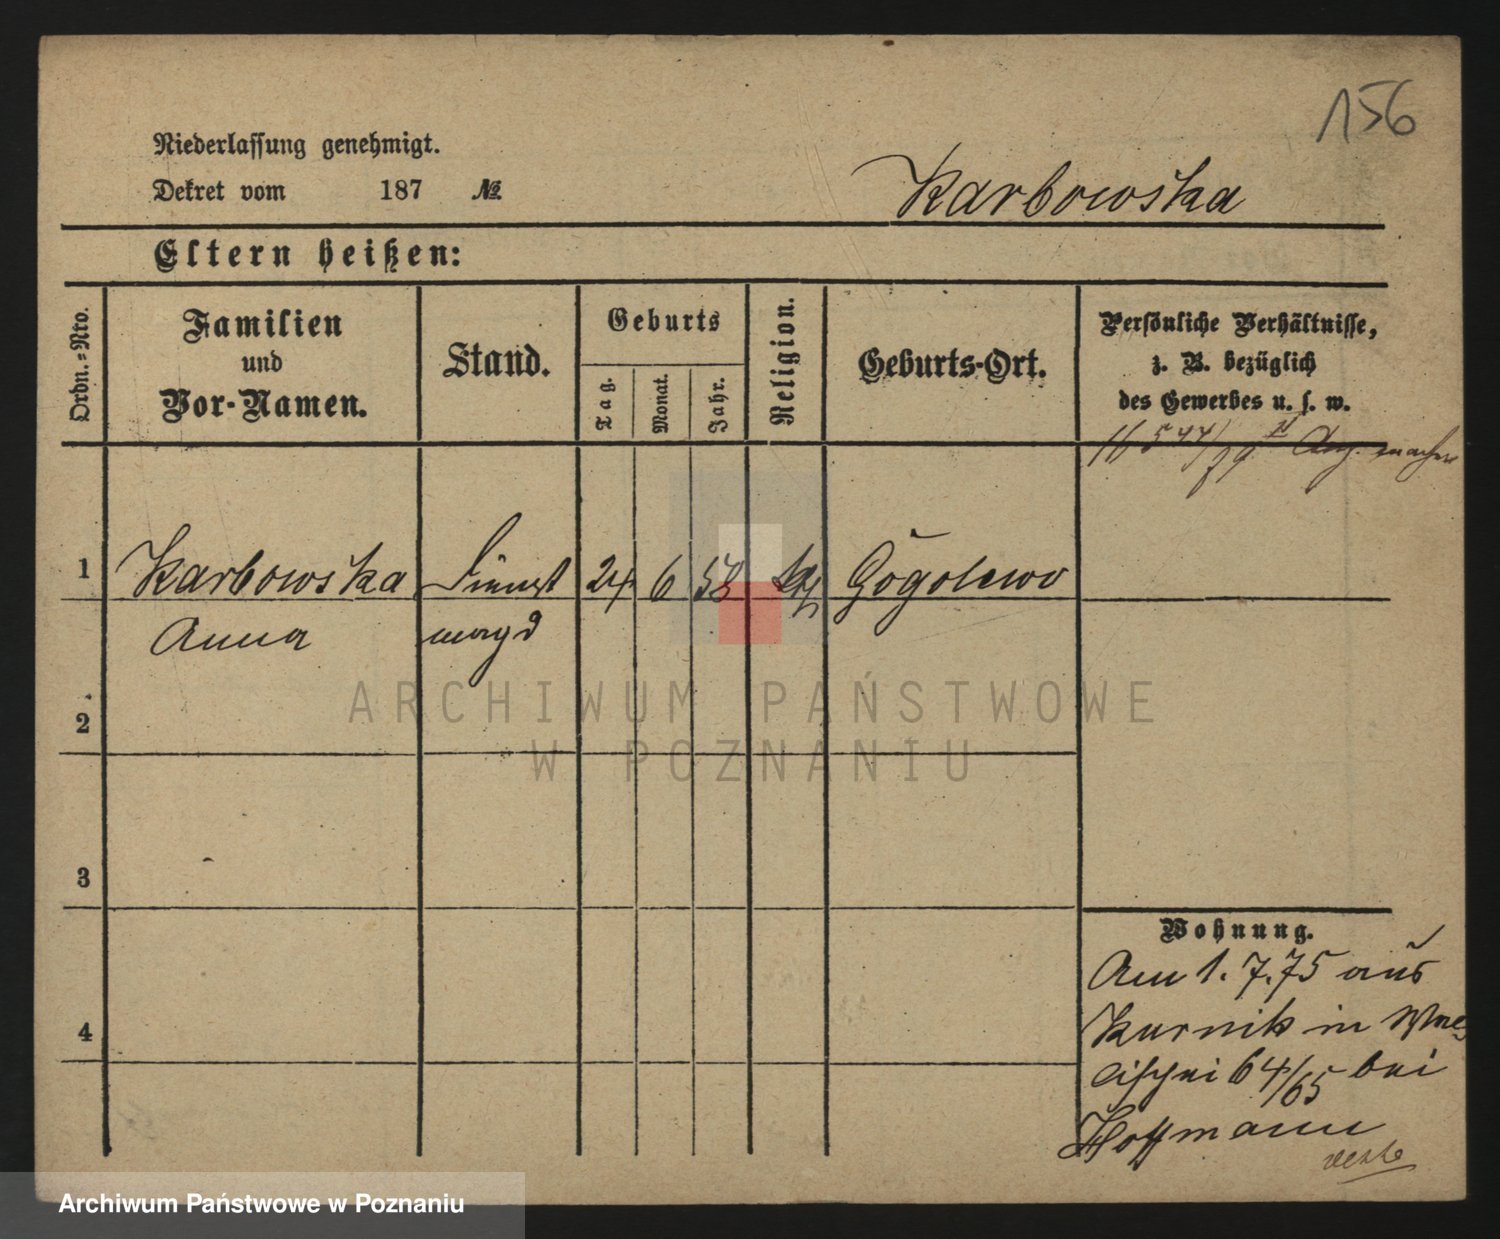 156
Niederlassung genehmigt.
Dekret vom 187 №
Karbowska
Eltern heißen:
Ordn.-Nro.
Familien
und
Vor-Namen.
Stand.
Geburts
Tag.
Monat.
Jahr.
Religion.
Geburts-Ort.
Persönliche Verhältnisse,
z. B. bezüglich
des Gewerbes u. s. w.
544/79
1 Karbowska Dienst 24 6 58 kth Gogolewo
Anna magd
2
3
4
Wohnung.
Am 1. 7. 75 aus
Kurnik in
64/65 bei
Hoffmann
ARCHIWUM PAŃSTWOWE
W POZNANIU
Archiwum Państwowe w Poznaniu